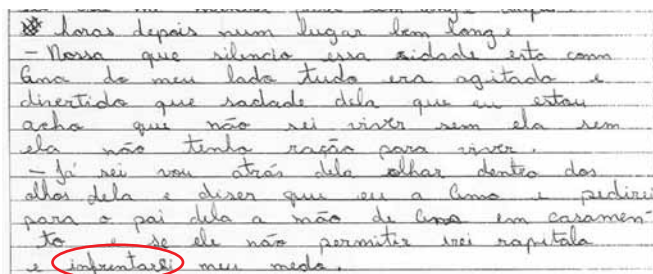 horas depois num lugar bem longe
- Nossa que silencio essa sidade esta comn
Ana do meu lado tudo era agitado e
divertido que sadade dela que eu estou
acho que não sei viver sem ela sem
ela não tenho ração para viver.
- Já sei vou atrás dela olhar dentro dos
olhos dela e diser que eu a amo e pedirei
para o pai dela a mão de Ana em casamen-
to e se ele não permitir irei rapitala
e infrentarei meu medo.